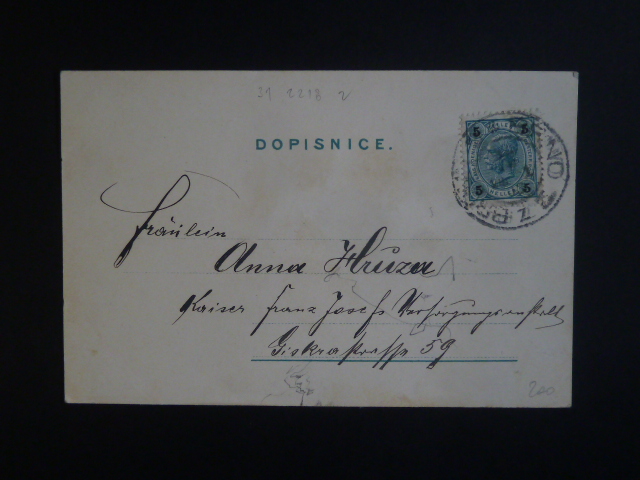 31 2218 2
DOPISNICE.
5 5
5 HELLER 5
Fräulein
Anna Hruza
Kaiser Franz Josefs Versorgungsanstalt
Giskrastrasse 59
200